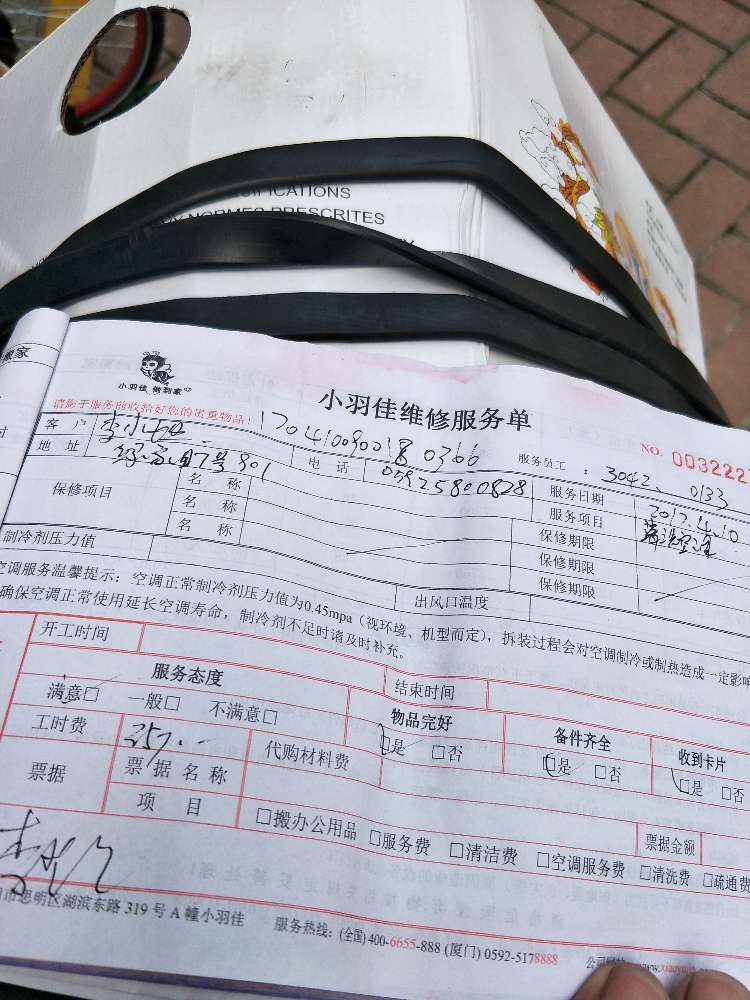 NORMES PRESCRITES
搬家
小羽佳 做到家
小羽佳维修服务单
请您于服务前收拾好您的贵重物品!
170410090018 0366
NO. 003222
客户
服务员工: 3042、0133
地址
电话 05925800828
服务日期 2017.4.10
保修项目
名称
名称
名称
服务项目 清洗空调
保修期限
保修期限
保修期限
制冷剂压力值
出风口温度
空调服务温馨提示:空调正常制冷剂压力值为0.45mpa(视环境、机型而定),拆装过程会对空调制冷或制热造成一定影响
确保空调正常使用延长空调寿命,制冷剂不足时请及时补充。
开工时间
结束时间
服务态度
物品完好
备件齐全
收到卡片
满意□ 一般□ 不满意□
□是 □否
□是 □否
□是 □否
工时费 257.--
代购材料费
票据
票据名称
票据金额
项目
□搬办公用品 □服务费 □清洁费 □空调服务费 □清洗费 □疏通费
市思明区湖滨东路 319 号 A 幢小羽佳
服务热线:(全国) 400-6655-888 (厦门) 0592-5178888